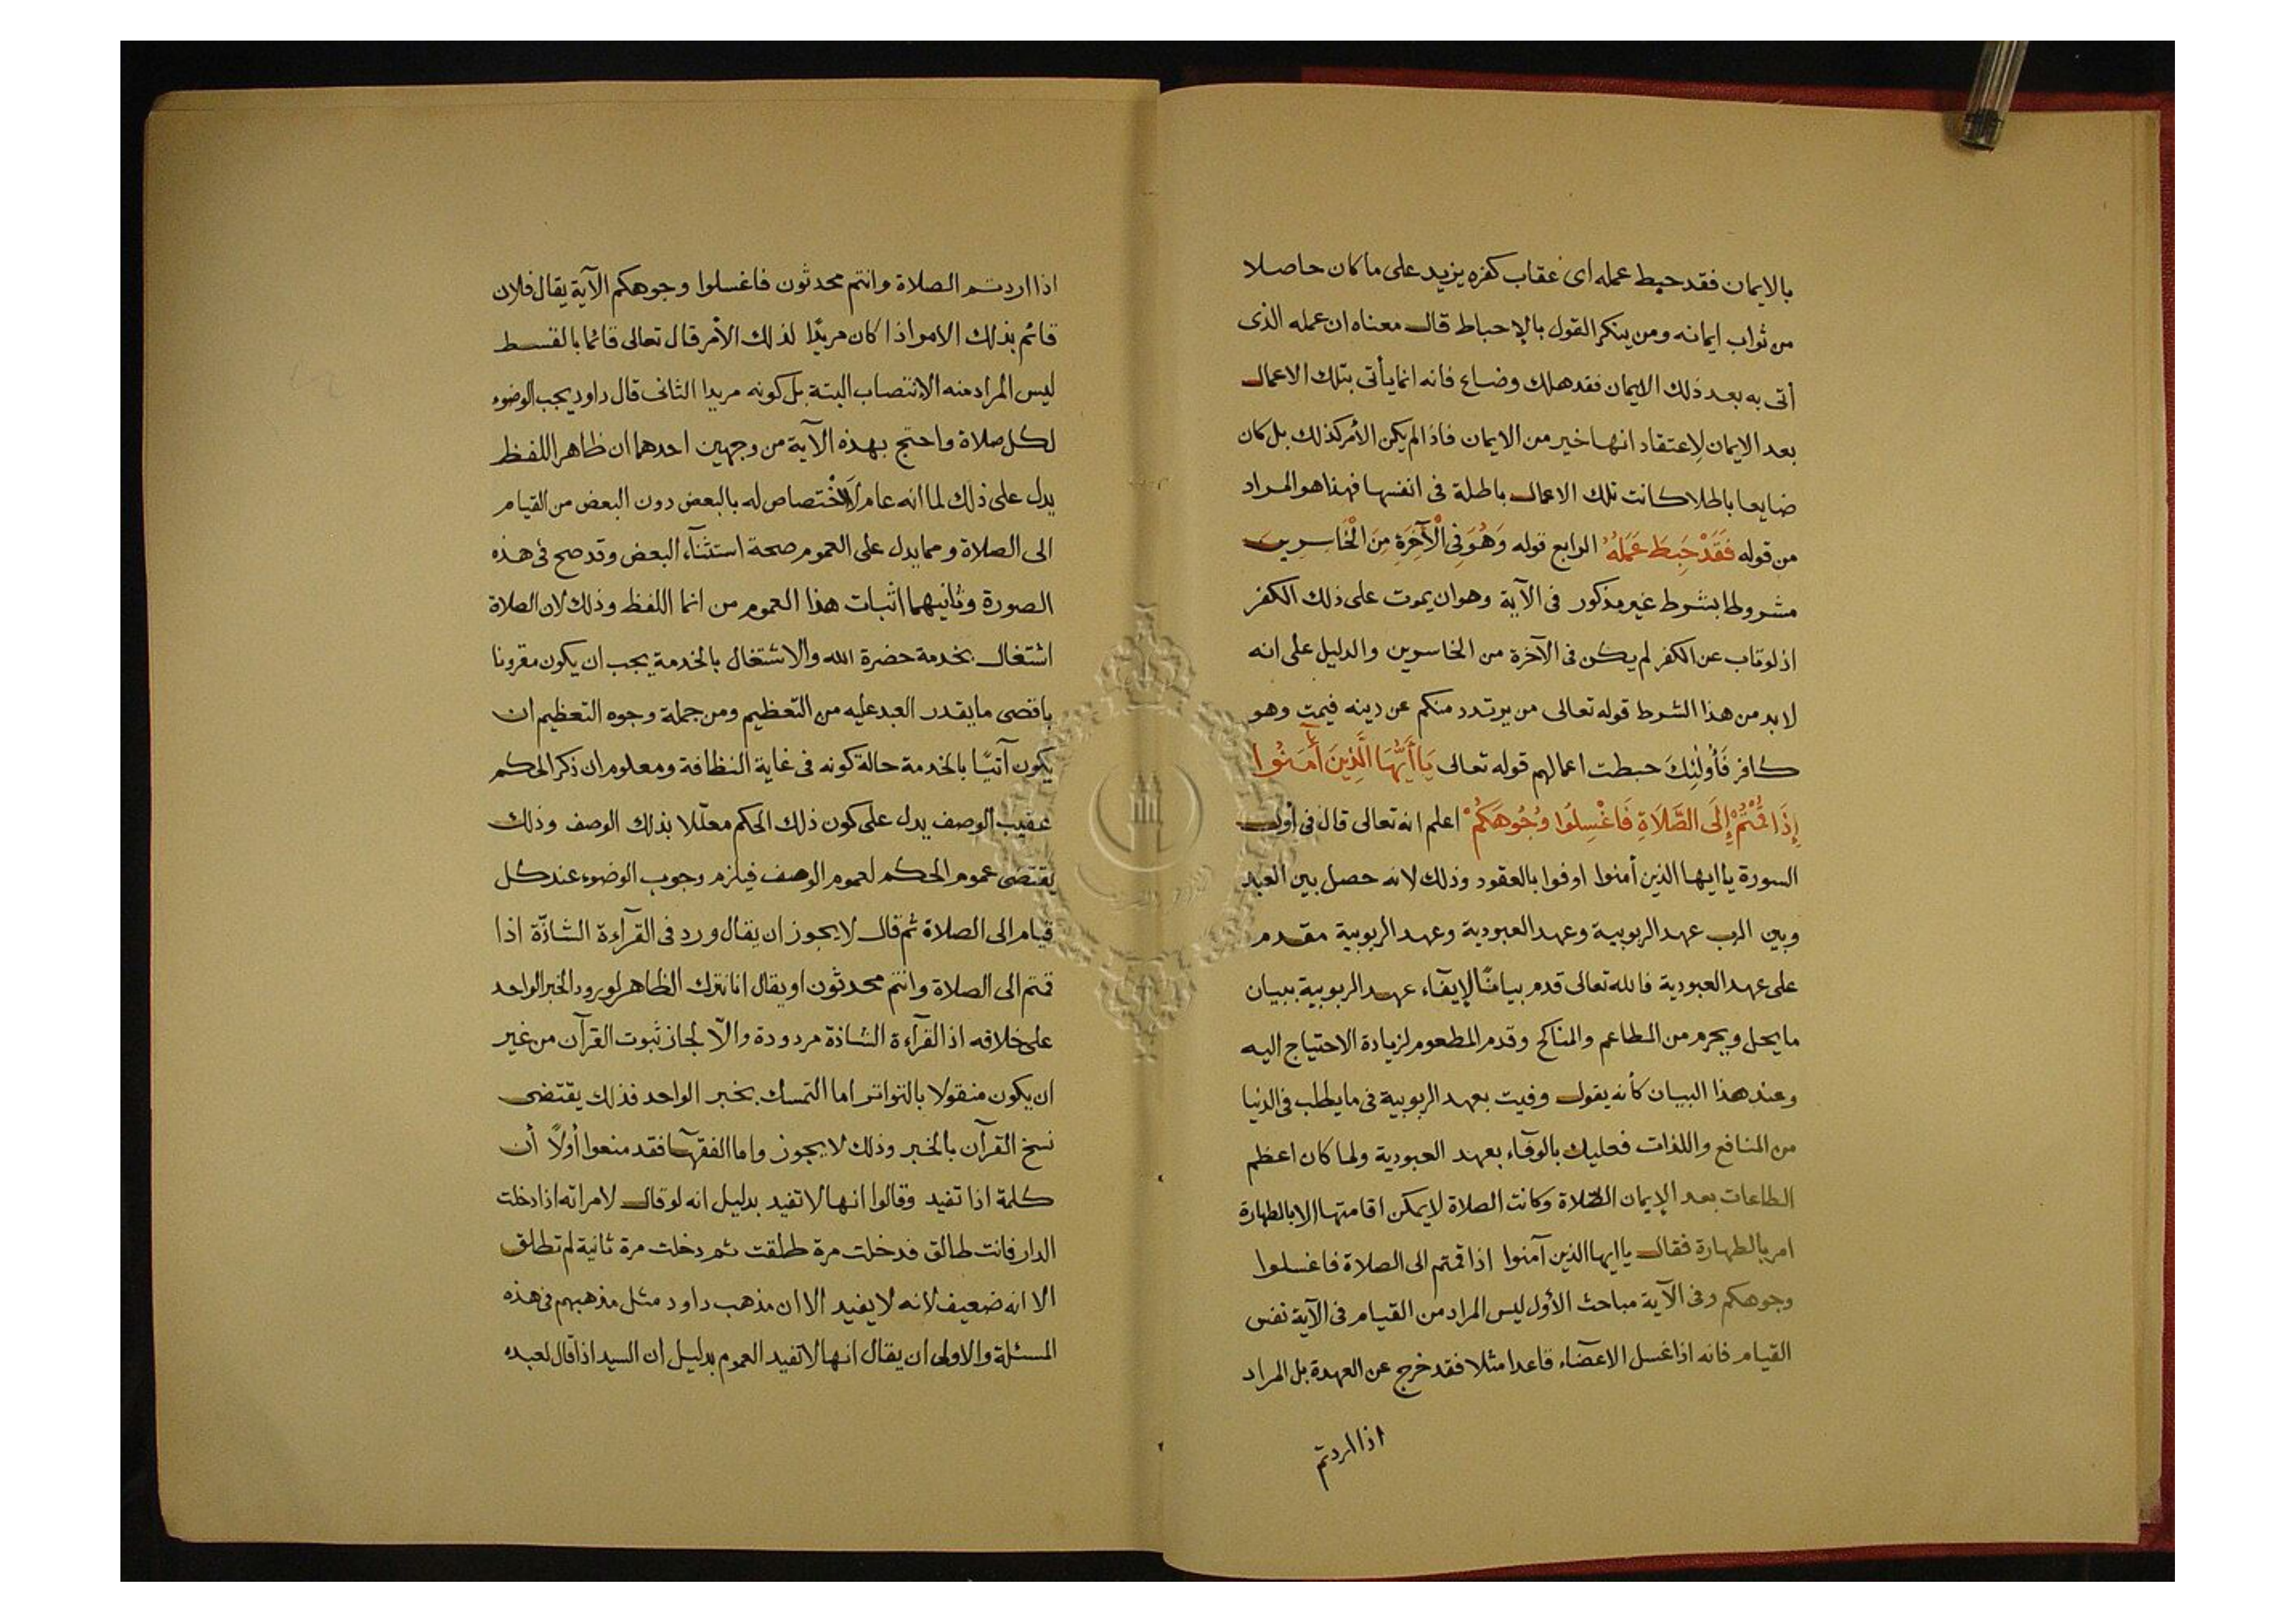 بالايمان فقد حبط عمله اى عقاب كفره يزيد على ما كان حاصلا
من ثواب ايمانه ومن ينكر القول بالإحباط قال معناه ان عمله الذى
أتى به بعد ذلك الايمان فقد هلك وضاع فانه انما يأتى بتلك الاعمال
بعد الايمان لاعتقاد انها خير من الايمان فاذا لم يكن الأمر كذلك بل كان
ضايعا باطلا كانت تلك الاعمال باطلة فى انفسها فهذا هو المراد
من قوله فَقَدْ حَبِطَ عَمَلُهُ الرابع قوله وَهُوَ فِى الْآخِرَةِ مِنَ الْخَاسِرِينَ
مشروط بشرط غير مذكور فى الآية وهو ان يموت على ذلك الكفر
اذ لو تاب عن الكفر لم يكن فى الآخرة من الخاسرين والدليل على انه
لا بد من هذا الشرط قوله تعالى من يرتدد منكم عن دينه فيمت وهو
كافر فَأُولٰئِكَ حبطت اعمالهم قوله تعالى يَا أَيُّهَا الَّذِينَ أٰمَنُوا
إِذَا قُمْتُمْ إِلَى الصَّلَاةِ فَاغْسِلُوا وُجُوهَكُمْ اعلم انه تعالى قال فى أول
السورة يا ايها الذين أمنوا اوفوا بالعقود وذلك لانه حصل بين العبد
وبين الرب عهد الربوبية وعهد العبودية وعهد الربوبية مقدم
على عهد العبودية فالله تعالى قدم بيانًا لإيفآء عهد الربوبية ببيان
ما يحل ويحرم من المطاعم والمناكح وقدم المطعوم لزيادة الاحتياج اليه
وعند هذا البيان كأنه يقول وفيت بعهد الربوبية فى ما يطلب فى الدنيا
من المنافع واللذات فعليك بالوفآء بعهد العبودية ولما كان اعظم
الطاعات بعد الإيمان الصّلاة وكانت الصلاة لا يمكن اقامتها الا بالطهارة
امر بالطهارة فقال يا ايها الذين آمنوا اذا قمتم الى الصلاة فاغسلوا
وجوهكم وفى الآية مباحث الأول ليس المراد من القيام فى الآية نفس
القيام فانه اذا غسل الاعضآء قاعدا مثلا فقد خرج عن العهدة بل المراد
اذا اردتم
اذا اردتم الصلاة وانتم محدثون فاغسلوا وجوهكم الآية يقال فلان
قائم بذلك الامر اذا كان مريدًا لذلك الأمر قال تعالى قائما بالقسط
ليس المراد منه الانتصاب البتة بل كونه مريدا الثانى قال داود يجب الوضوء
لكل صلاة واحتج بهذه الآية من وجهين احدهما ان ظاهر اللفظ
يدل على ذلك لما انه عام لَا اخْتصاص له بالبعض دون البعض من القيام
الى الصلاة ومما يدل على العموم صحة استثنآء البعض وقد صح فى هذه
الصورة وثانيهما اثبات هذا العموم من انما اللفظ وذلك لان الصلاة
اشتغال بخدمة حضرة الله والاشتغال بالخدمة يجب ان يكون مقرونا
باقصى ما يقدر العبد عليه من التعظيم ومن جملة وجوه التعظيم ان
يكون آتيًا بالخدمة حالة كونه فى غاية النظافة ومعلوم ان ذكر الحكم
عقيب الوصف يدل على كون ذلك الحكم معلّلا بذلك الوصف وذلك
يقتضى عموم الحكم لعموم الوصف فيلزم وجوب الوضوء عند كل
قيام الى الصلاة ثم قال لا يجوز ان يقال ورد فى القرآءة الشاذّة اذا
قمتم الى الصلاة وانتم محدثون او يقال انا نترك الظاهر لورود الخبر الواحد
على خلافه اذ القرآءة الشاذة مردودة والّا لجاز ثبوت القرآن من غير
ان يكون منقولا بالتواتر اما التمسك بخبر الواحد فذلك يقتضى
نسخ القرآن بالخبر وذلك لا يجوز واما الفقهآء فقد منعوا أولًا أن
كلمة اذا تفيد وقالوا انها لا تفيد بدليل انه لو قال لامراته اذا دخلت
الدار فانت طالق فدخلت مرة طلقت ثم دخلت مرة ثانية لم تطلق
الا انه ضعيف لانه لا يفيد الا ان مذهب داود مثل مذهبهم فى هذه
المسئلة والاولى ان يقال انها لا تفيد العموم بدليل ان السيد اذا قال لعبده